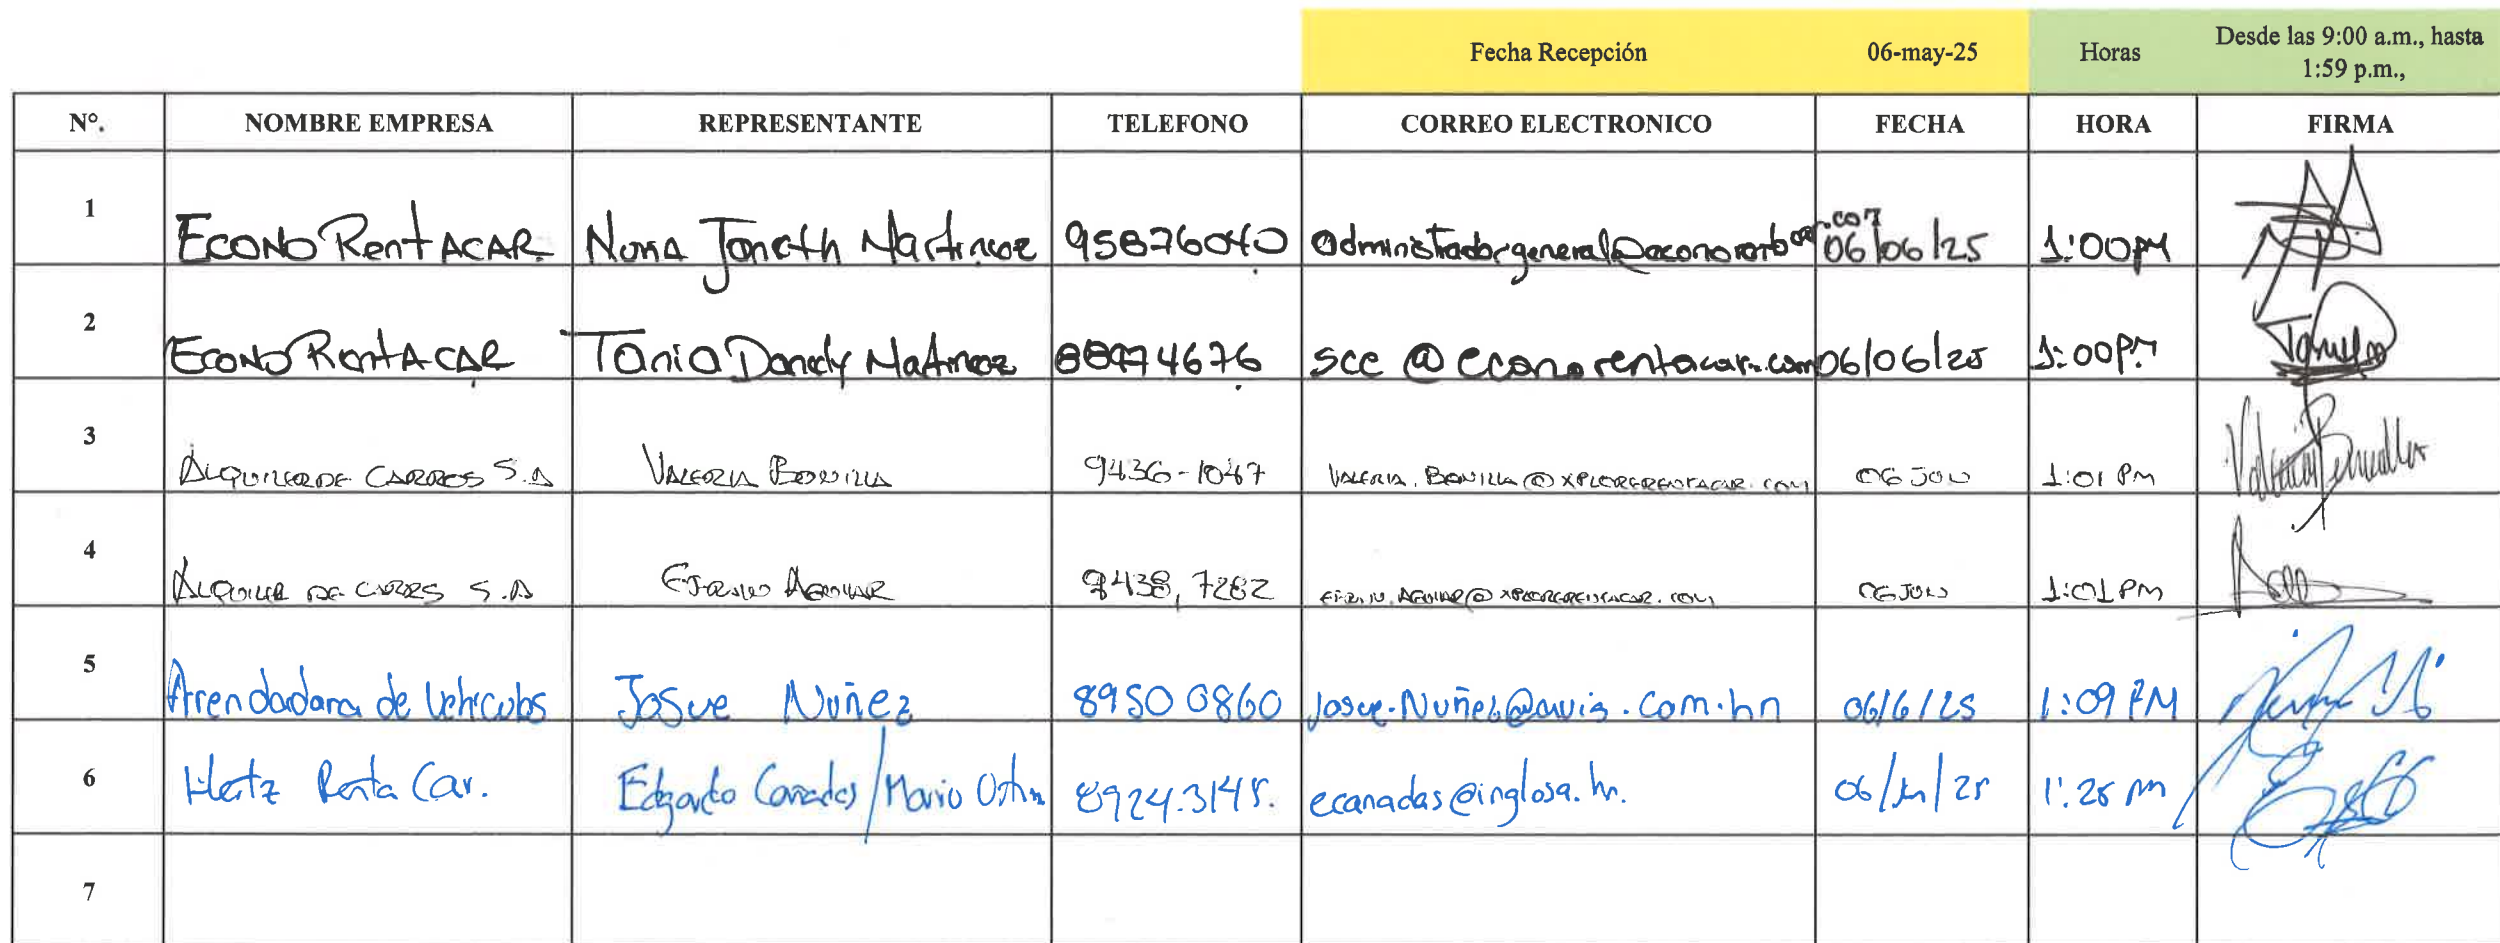 Fecha Recepción 06-may-25 Horas Desde las 9:00 a.m., hasta
1:59 p.m.,
N°. NOMBRE EMPRESA REPRESENTANTE TELEFONO CORREO ELECTRONICO FECHA HORA FIRMA
1 ECONO Rent A CAR Janeth Martinez 95876040 06/06/25 1:00PM
2 ECONO Rent A CAR Tania Martinez 4676 sce@econorentacar.com 06/06/25 1:00PM
3 ALQUILER DE CARROS S.A VALERIA BONILLA 9436-1047 VALERIA.BONILLA@XPLORERENTACAR.COM 06 JUN 1:01 PM
4 ALQUILER DE CARROS S.A AGUILAR 9438,7282 06 JUN 1:01PM
5 Arrendadora de Vehiculos Josue Nuñez 8950 0860 Josue.Nuñez@avis.com.hn 06/6/25 1:09 PM
6 Hertz Renta Car. Edgardo Canadas/Mario 8924.3145. ecanadas@inglosa.hn. 06/Jun/25 1:25 pm
7